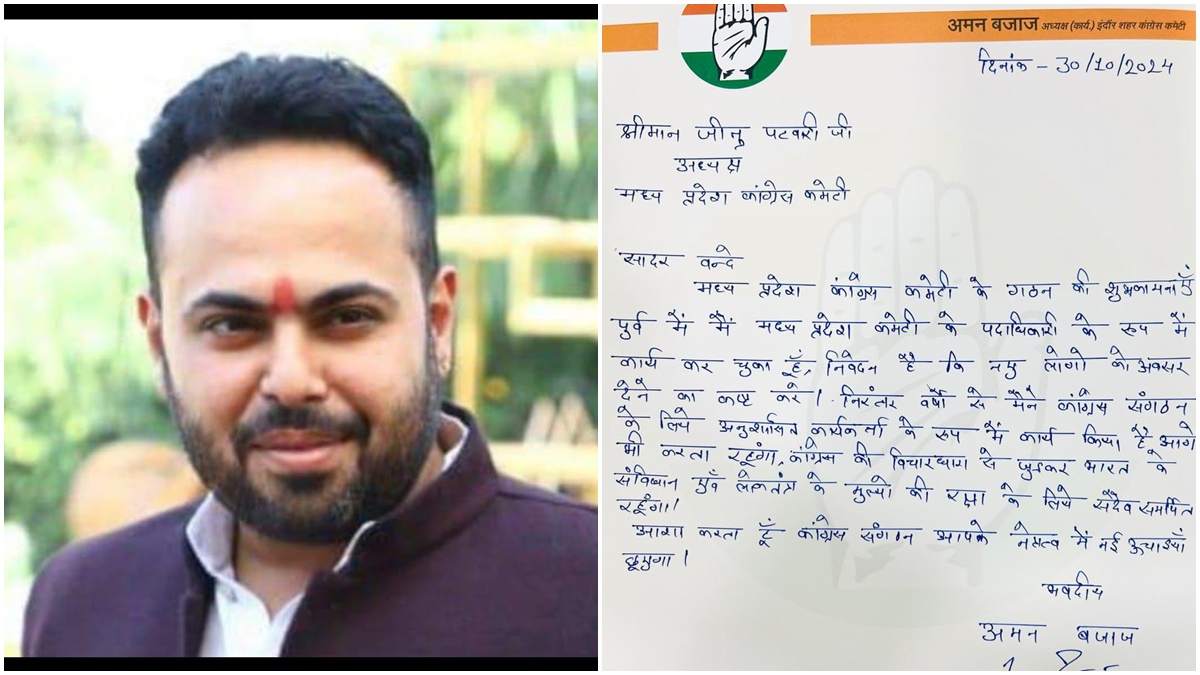 अमन बजाज अध्यक्ष (कार्य.) इंदौर शहर कांग्रेस कमेटी
दिनांक - 30/10/2024
श्रीमान जीतू पटवारी जी
अध्यक्ष
मध्य प्रदेश कांग्रेस कमेटी
सादर वन्दे
मध्य प्रदेश कांग्रेस कमेटी के गठन की शुभकामनाएँ
पुर्व में मैं मध्य प्रदेश कमेटी के पदाधिकारी के रूप में
कार्य कर चुका हूँ, निवेदन है कि नए लोगो को अवसर
देने का कष्ट करे। निरंतर वर्षों से मैने कांग्रेस संगठन
के लिये अनुशासित कार्यकर्ता के रूप में कार्य किया है आगे
भी करता रहूंगा, कांग्रेस की विचारधारा से जुड़कर भारत के
संविधान एवँ लोकतंत्र के मुल्यो की रक्षा के लिये सदैव समर्पित
रहूंगा।
आशा करता हूँ कांग्रेस संगठन आपके नेतृत्व में नई ऊचाईयाँ
छूएगा।
भवदीय
अमन बजाज